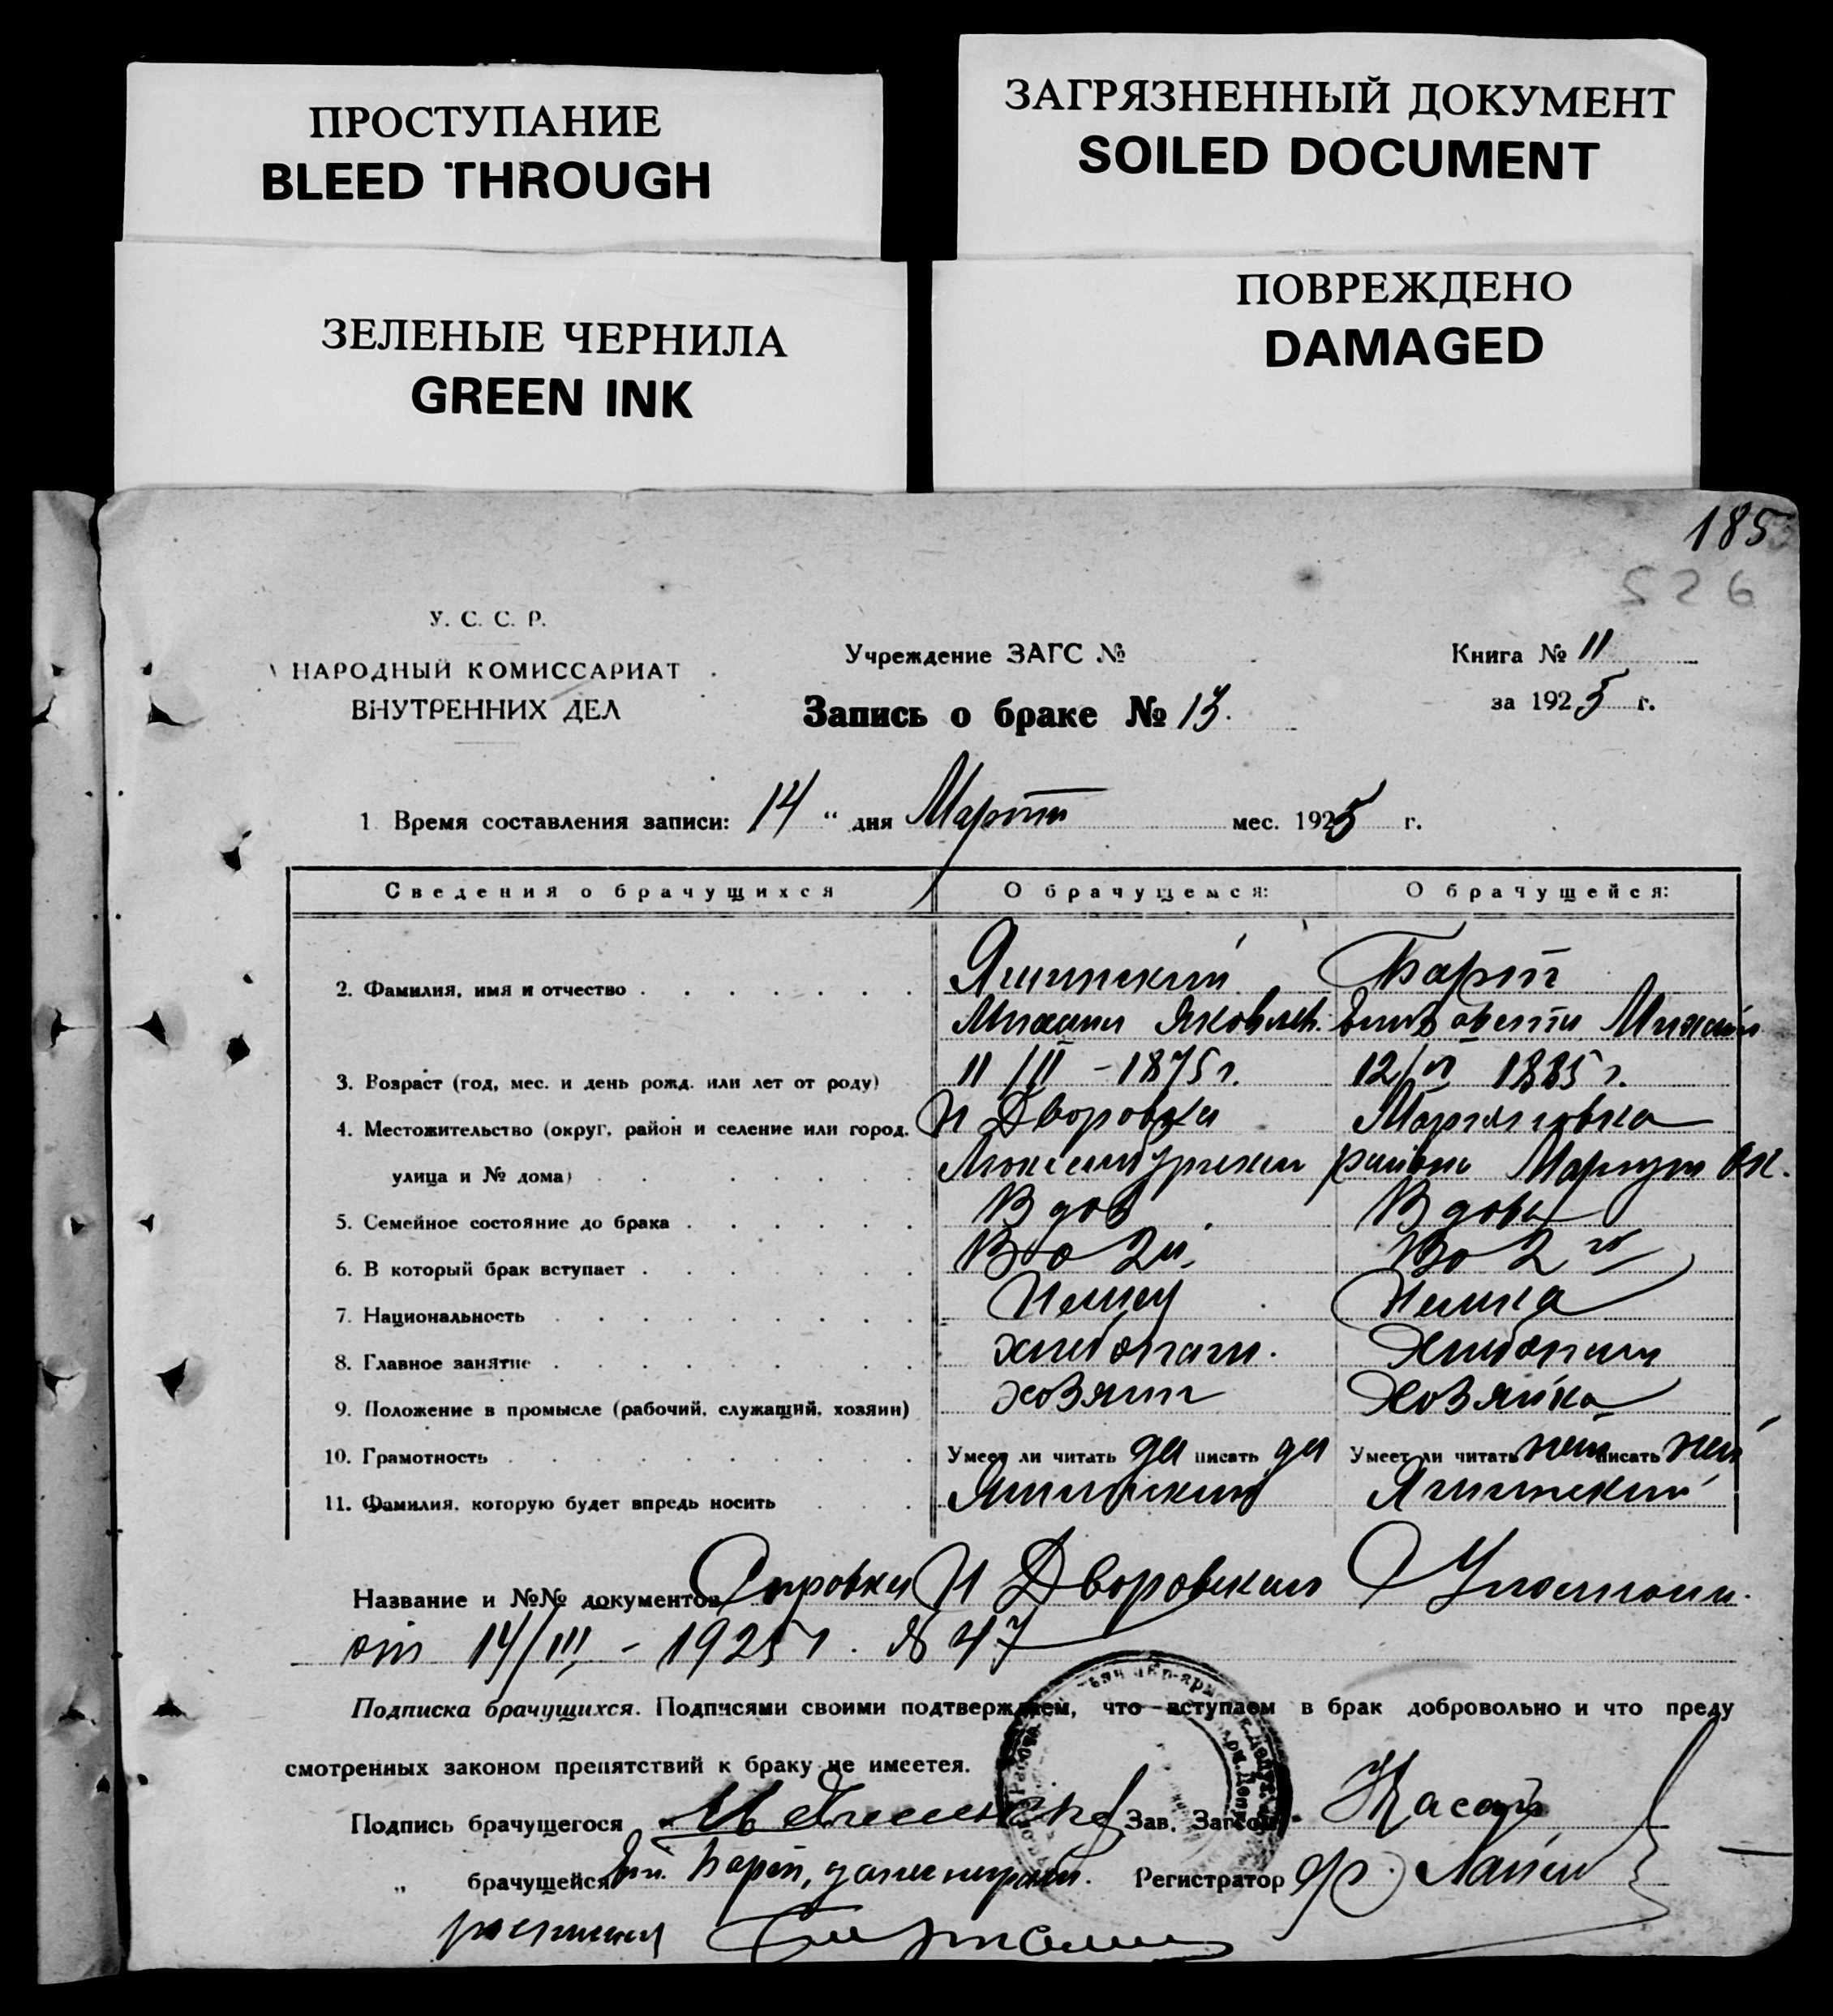 ПРОСТУПАНИЕ
BLEED THROUGH
ЗАГРЯЗНЕННЫЙ ДОКУМЕНТ
SOILED DOCUMENT
ЗЕЛЕНЫЕ ЧЕРНИЛА
GREEN INK
ПОВРЕЖДЕНО
DAMAGED
185
526
У. С. С. Р.
НАРОДНЫЙ КОМИССАРИАТ
ВНУТРЕННИХ ДЕЛ
Учреждение ЗАГС №
Запись о браке № 13.
Книга № 11
за 1925 г.
1 Время составления записи: 14 " дня Марта мес. 1925 г.
Сведения о брачущихся О брачущемся: О брачущейся:
2. Фамилия, имя и отчество Яшинский Барт
Михаил Яковлев. Елизавета Михайл
3. Возраст (год, мес. и день рожд. или лет от роду) 11/II - 1875 г. 12/VI 1885 г.
4. Местожительство (округ, район и селение или город, Н Дворовка
улица и № дома) района Мариуп Ок.
5. Семейное состояние до брака Вдов Вдова
6. В который брак вступает Во 2й. Во 2й
7. Национальность Немец Немка
8. Главное занятие хлебопаш. Хлебопаш
9. Положение в промысле (рабочий, служащий, хозяин) хозяин Хозяйка
10. Грамотность Умеет ли читать да писать да Умеет ли читать нет писать нет
11. Фамилия, которую будет впредь носить Яшинский Яшинский
Название и №№ документов Справка Н Дворовского
от 14/III - 1925 г. № 47
Подписка брачущихся. Подписями своими подтверждаем, что вступаем в брак добровольно и что преду
смотренных законом препятствий к браку не имеется.
Подпись брачущегося Зав. Загсом
" брачущейся Барт, за неграм. Регистратор